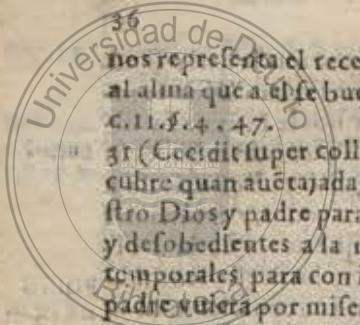 36
nos representa el rece
al alma que a el se bue
c.11.§.4.47.
31 (Cecidit super coll
cubre quan auẽtajada
stro Dios y padre para
y desobedientes a la
temporales, para con
padre vuiera por mise
Universidad de Deusto